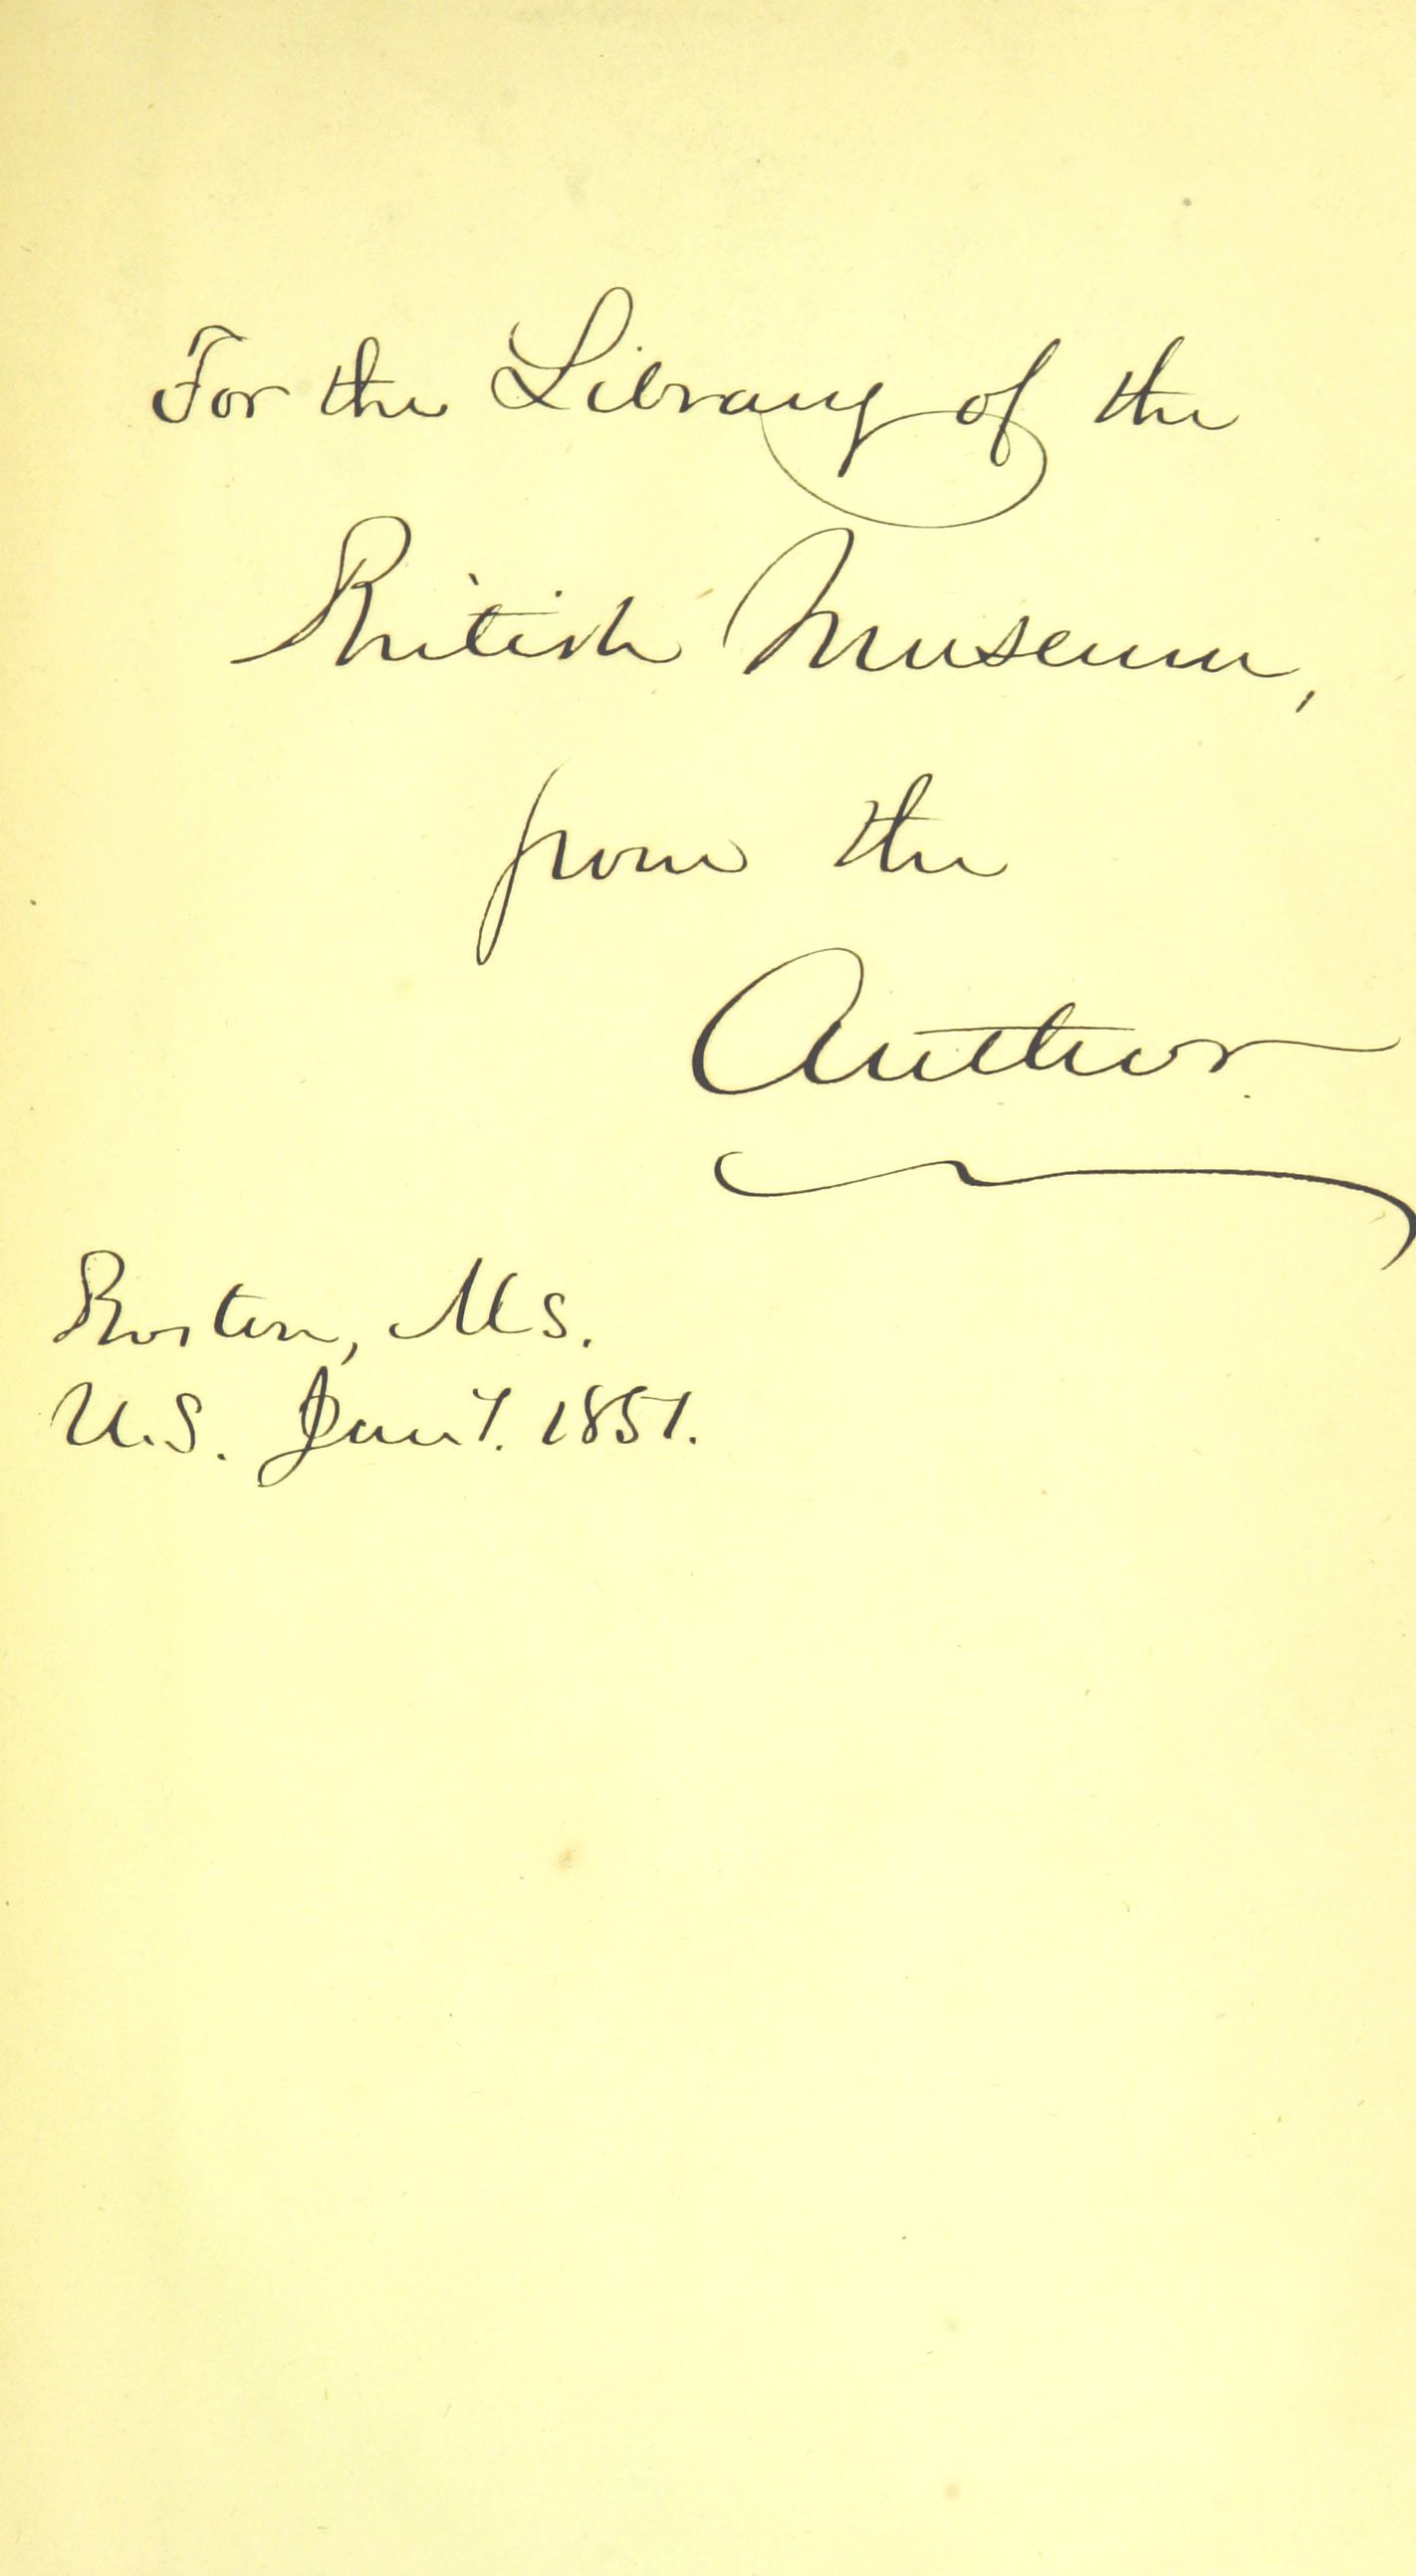 For the Library of the
British Museum,
from the
Author.
Boston, Ms.
U.S. Jany. 1851.